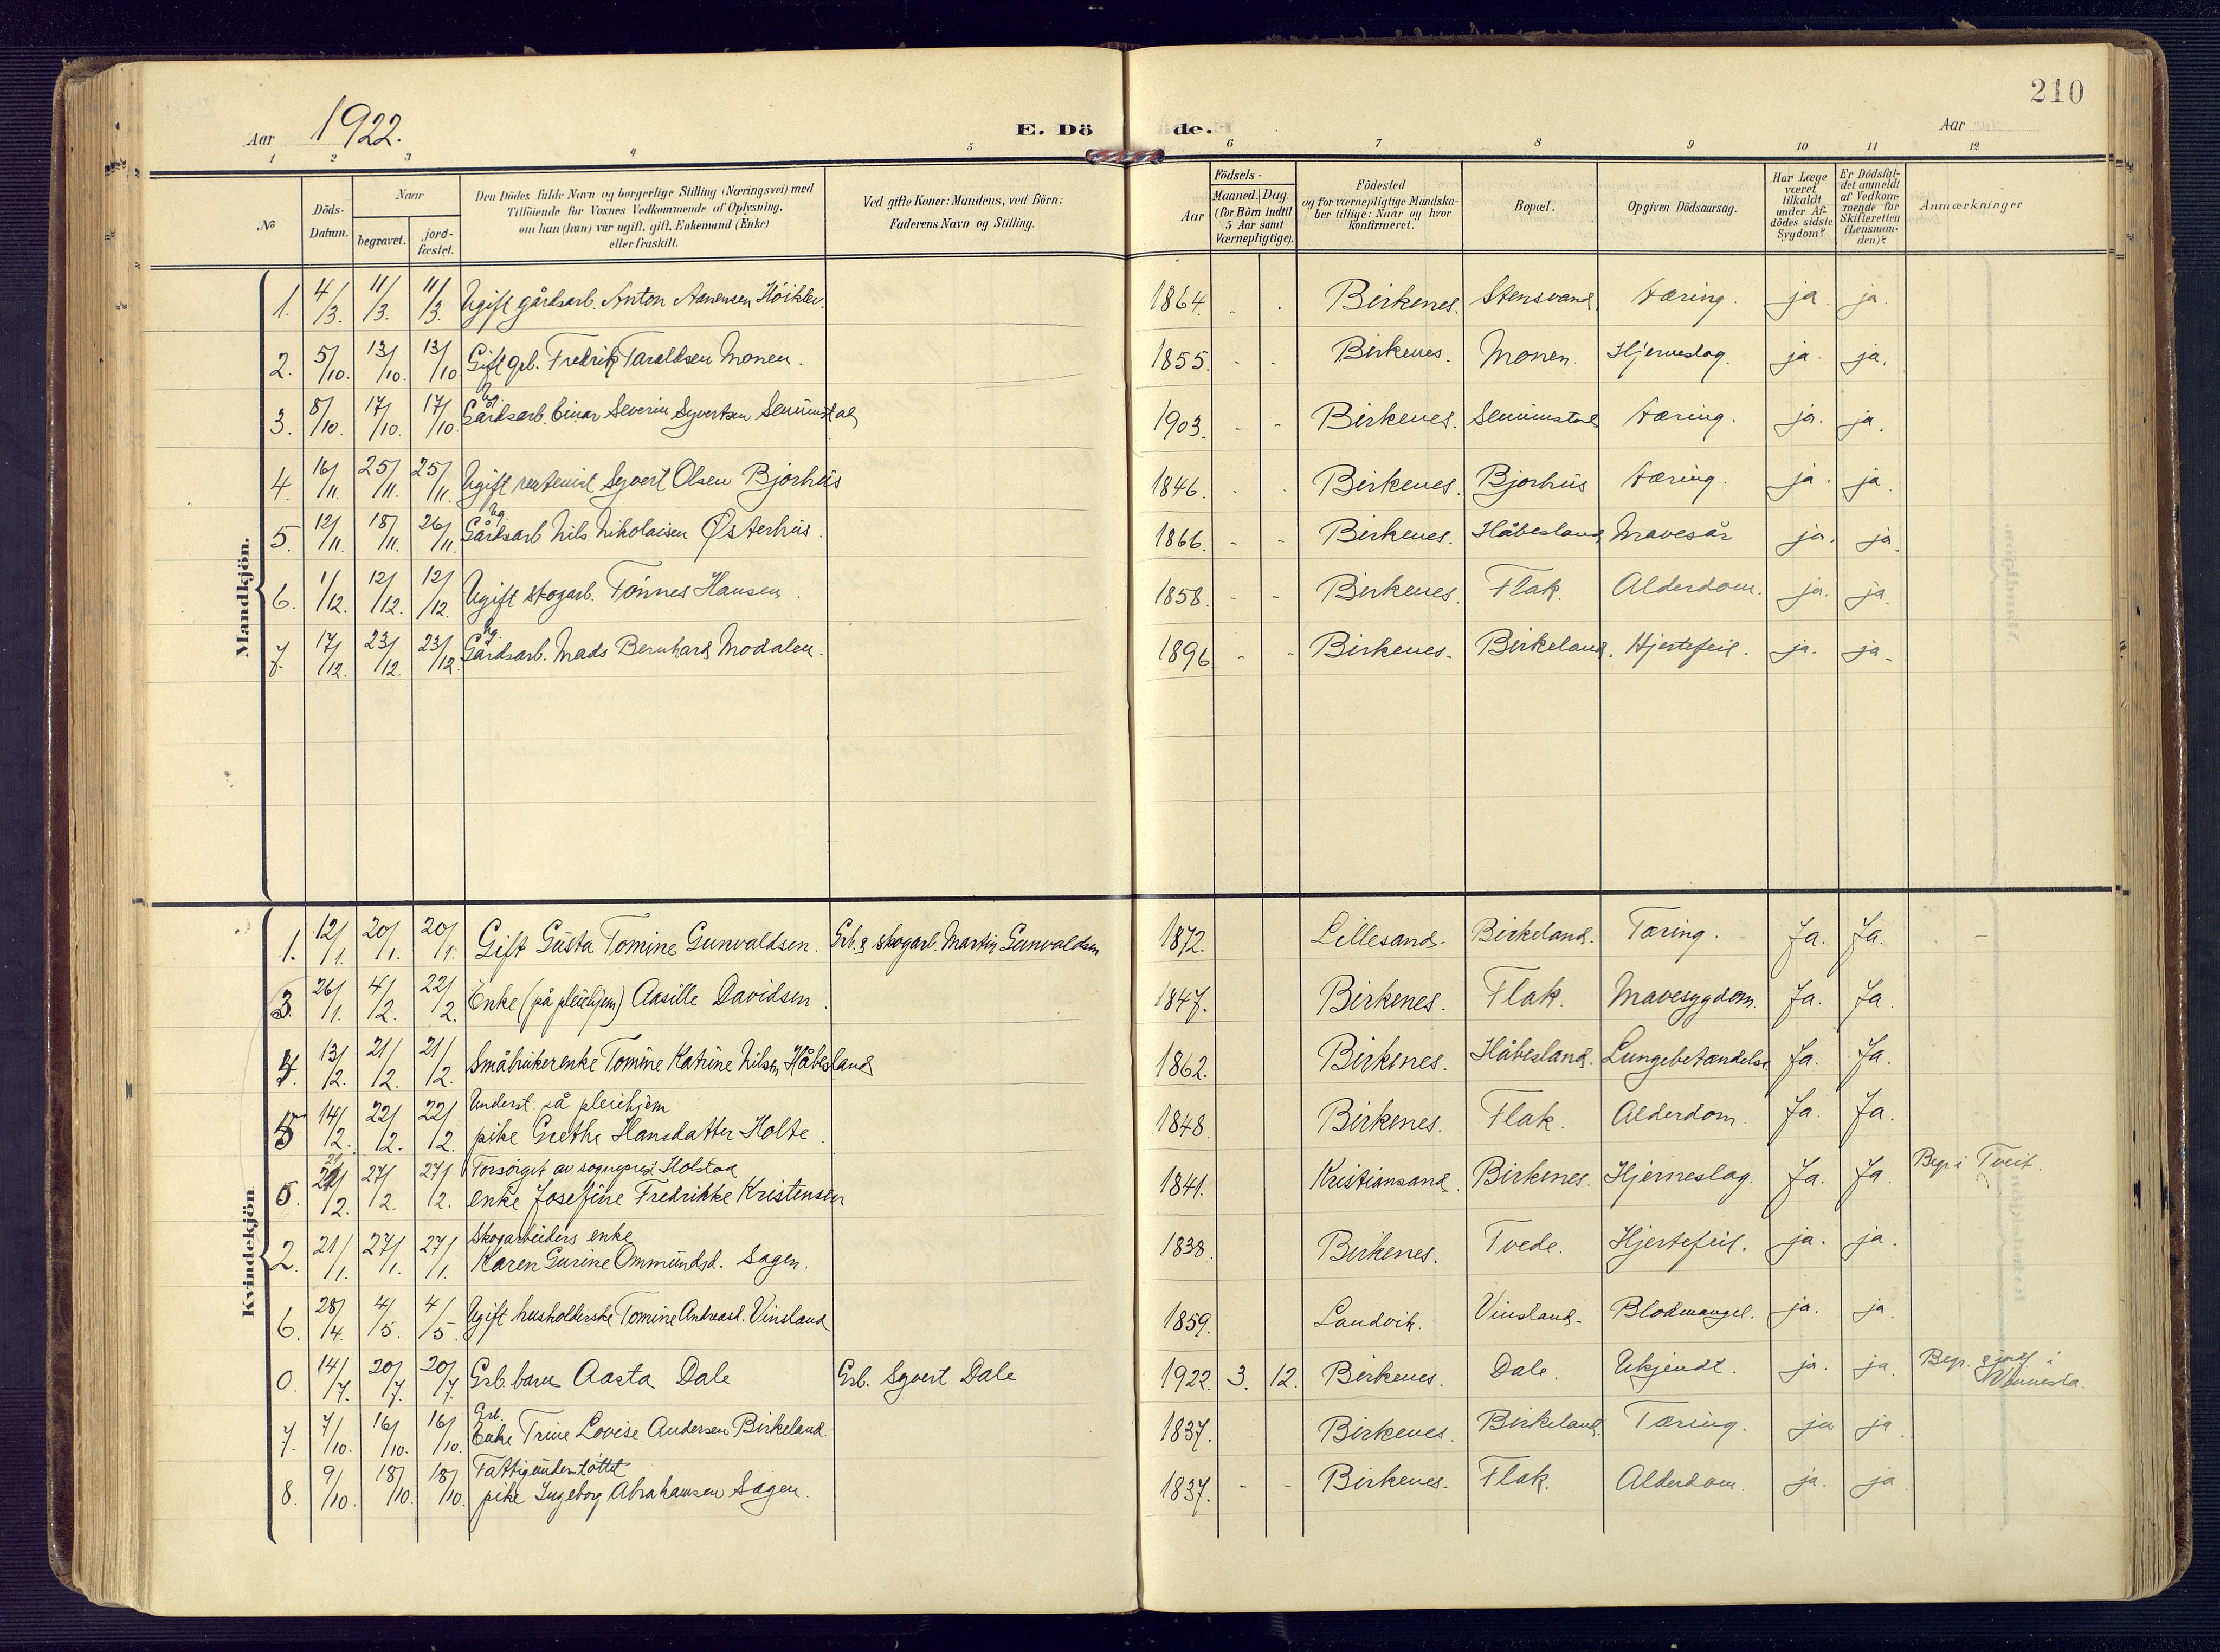 210
Aar 1922.
E. Dö de.
Aar
1 2 3 4 5 6 7 8 9 10 11 12
№
Döds-
Datum.
Naar
begravet.
jord-
fæstet.
Den Dödes fulde Navn og borgerlige Stilling (Næringsvei) med
Tilföiende for Voxnes Vedkommende af Oplysning,
om han (hun) var ugift, gift, Enkemand (Enke)
eller fraskilt.
Ved gifte Koner: Mandens, ved Börn:
Faderens Navn og Stilling.
Födsels-
Aar
Maaned. Dag.
(for Börn indtil
5 Aar samt
Værnepligtige).
Födested
og for værnepligtige Mandska-
ber tillige: Naar og hvor
konfirmeret.
Bopæl.
Opgiven Dödsaarsag.
Har Læge
været
tilkaldt
under Af-
dödes sidste
Sygdom?
Er Dödsfal-
det anmeldt
af Vedkom-
mende for
Skifteretten
(Lensman-
den)?
Anmærkninger
Mandkjön.
1. 4/3. 11/3. 11/3. Ugift gårdsarb. Anton Aanensen Höiklev. 1864. - . Birkenes. Stensvand. tæring. ja. ja.
2. 5/10. 13/10. 13/10 Gift gb. Fredrik Taraldsen Monen. 1855. - - Birkenes. Monen. Hjerneslag. ja. ja.
ug.
3. 8/10. 17/10. 17/10. Gårdsarb. Einar Severin Syvertsen Senumstad 1903. - - Birkenes. Senumstad tæring. ja. ja.
4. 16/11. 25/11. 25/11. Ugift rentenist Syvert Olsen Bjorhus 1846. . . Birkenes. Bjorhus tæring. ja. ja.
ug.
5. 12/11. 18/11. 26/11. Gårdsarb Nils Nikolaisen Østerhus. 1866. - - Birkenes. Håbesland Mavesår ja. ja.
6. 1/12. 12/12. 12/12. Ugift skogarb. Tönnes Hansen. 1858. - - Birkenes. Flak. Alderdom. ja. ja.
ug.
7. 17/12. 23/12. 23/12. Gårdsarb. Mads Bernhard Modalen. 1896 - - Birkenes. Birkeland. Hjertefeil. ja. ja.
Kvindekjön
1. 12/1. 20/1. 20/1. Gift Gusta Tomine Gunvaldsen. Grb. & skogarb. Martin Gunvaldsen 1872. Lillesand. Birkeland. Tæring. Ja. Ja. -
3. 26/1. 4/2. 22/2. Enke (på pleiehjem) Aasille Davidsen. 1847. Birkenes. Flak. Mavesygdom. Ja. Ja.
4. 13/2. 21/2. 21/2. Småbrukerenke Tomine Katrine Nilsen, Håbesland 1862. Birkenes. Håbesland. Lungebetændelse Ja. Ja.
Underst. på pleiehjem
5 14/2. 22/2. 22/2 pike Grethe Hansdatter Holte. 1848. Birkenes. Flak. Alderdom. Ja. Ja.
Forsörget av sogneprest Holstad
0. 2. 27/2. 27/2. enke Josefine Fredrikke Kristensen 1841. Kristiansand. Birkenes. Hjerneslag. Ja. Ja. Begr. i Tveit.
Skogarbeiders enke
2. 21/1. 27/1. 27/1. Karen Gurine Ommundsd. Sagen. 1838. Birkenes. Tvede. Hjertefeil. ja. ja.
6. 28/4. 4/5. 4/5. Ugift husholderske Tomine Andreasd. Vinsland 1859. Landvik. Vinsland. Blodmangel. ja. ja.
0. 14/7. 20/7. 20/7. Grb. barn Aasta Dale Grb. Syvert Dale 1922. 3. 12. Birkenes. Dale. Ukjendt. ja. ja Begr. & jordf. i
Vennesla.
Grb.
7. 7/10. 16/10. 16/10. Enke Trine Lovise Andersen Birkeland. 1837. Birkenes. Birkeland. Tæring. ja ja.
Fattigunderstöttet
8. 9/10. 18/10. 18/10. pike Ingeborg Abrahamsen Sagen. 1837. - - Birkenes. Flak. Alderdom. ja. ja